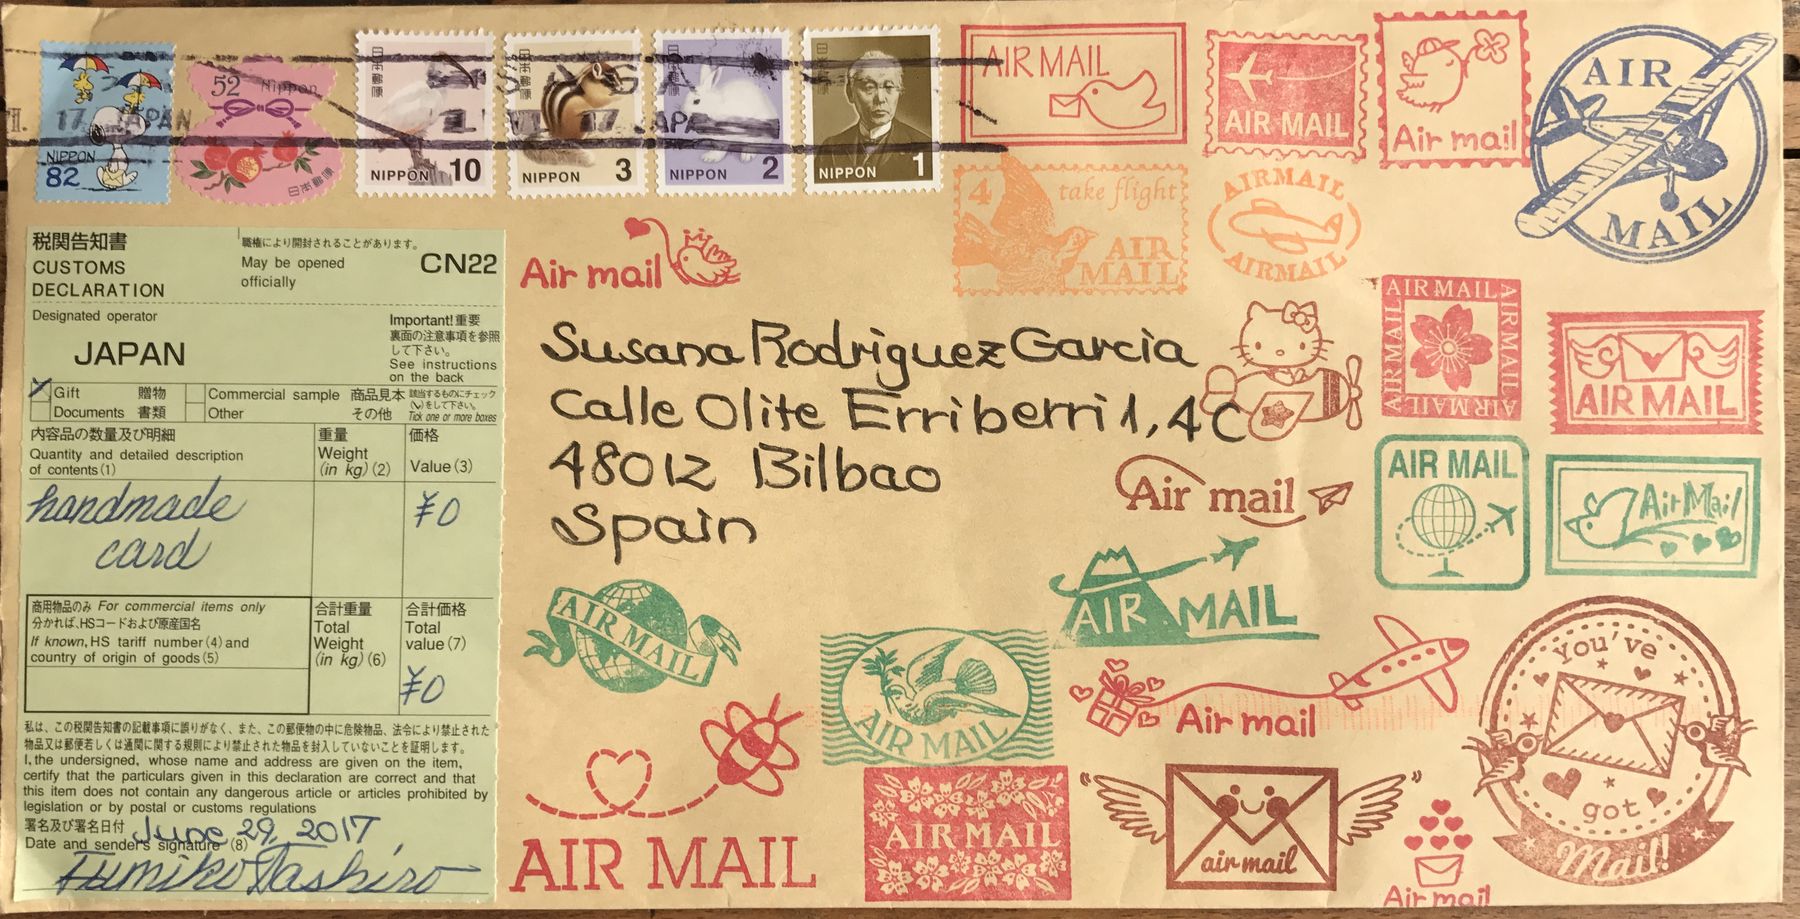 NIPPON
82
52 Nippon
日本郵便
日本郵便
NIPPON 10
日本郵便
NIPPON 3
日本郵便
NIPPON 2
日本郵便
NIPPON 1
17. JAPAN
AIR MAIL
AIR MAIL
Air mail
AIR
MAIL
4 take flight
AIR
MAIL
AIRMAIL
AIRMAIL
Air mail
税関告知書
CUSTOMS
DECLARATION
職権により開封されることがあります。
May be opened
officially
CN22
Designated operator
JAPAN
Important! 重要
裏面の注意事項を参照
して下さい。
See instructions
on the back
Gift 贈物
Commercial sample 商品見本
Documents 書類
Other その他
該当するものにチェック
(✓)をして下さい。
Tick one or more boxes
内容品の数量及び明細
Quantity and detailed description
of contents (1)
重量
Weight
(in kg) (2)
価格
Value (3)
handmade
card
¥0
商用物品のみ For commercial items only
分かれば、HSコードおよび原産国名
If known, HS tariff number (4) and
country of origin of goods (5)
合計重量
Total
Weight
(in kg) (6)
合計価格
Total
value (7)
¥0
私は、この税関告知書の記載事項に誤りがなく、また、この郵便物の中に危険物品、法令により禁止された
物品又は郵便若しくは通関に関する規則により禁止された物品を封入していないことを証明します。
I, the undersigned, whose name and address are given on the item,
certify that the particulars given in this declaration are correct and that
this item does not contain any dangerous article or articles prohibited by
legislation or by postal or customs regulations
署名及び署名日付
Date and sender's signature (8)
June 29, 2017
Fumiko Tashiro
Susana Rodriguez Garcia
Calle Olite Erriberri 1, 4C
48012 Bilbao
Spain
AIR MAIL
AIR MAIL
AIR MAIL
AIR MAIL
AIR MAIL
Air mail
AIR MAIL
Air Mail
AIR MAIL
AIR MAIL
AIR MAIL
Air mail
You've
got
Mail!
AIR MAIL
AIR MAIL
air mail
Air mail